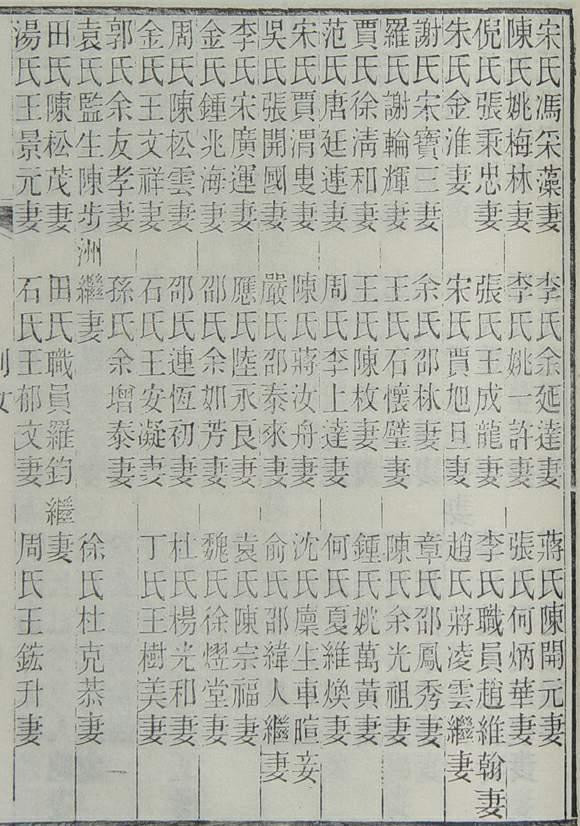 宋氏馮采藻妻　李氏余延達妻　蔣氏陳開元妻
陳氏姚梅林妻　李氏姚一許妻　張氏何炳華妻
倪氏張秉忠妻　張氏王成龍妻　李氏職員趙維翰妻
朱氏金淮妻　宋氏賈旭旦妻　趙氏蔣凌雲繼妻
謝氏宋寶三妻　余氏邵林妻　章氏邵鳳秀妻
羅氏謝輪輝妻　王氏石懷璧妻　陳氏余光祖妻
賈氏徐淸和妻　王氏陳枚妻　鍾氏姚萬黃妻
范氏唐廷連妻　周氏李上達妻　何氏夏維煥妻
宋氏賈渭叟妻　陳氏蔣汝舟妻　沈氏廩生車暄妾
吳氏張開國妻　嚴氏邵泰來妻　俞氏邵緯人繼妻
李氏宋廣運妻　應氏陸永良妻　袁氏陳宗福妻
金氏鍾兆海妻　邵氏余如芳妻　魏氏徐熠堂妻
周氏陳松雲妻　邵氏連恆初妻　杜氏楊光和妻
金氏王文祥妻　石氏王安凝妻　丁氏王樹美妻
郭氏余友孝妻　孫氏余增泰妻
袁氏監生陳步洲繼妻　徐氏杜克恭妻
田氏陳松茂妻　田氏職員羅鈞繼妻
湯氏王景元妻　石氏王郁文妻　周氏王鋐升妻